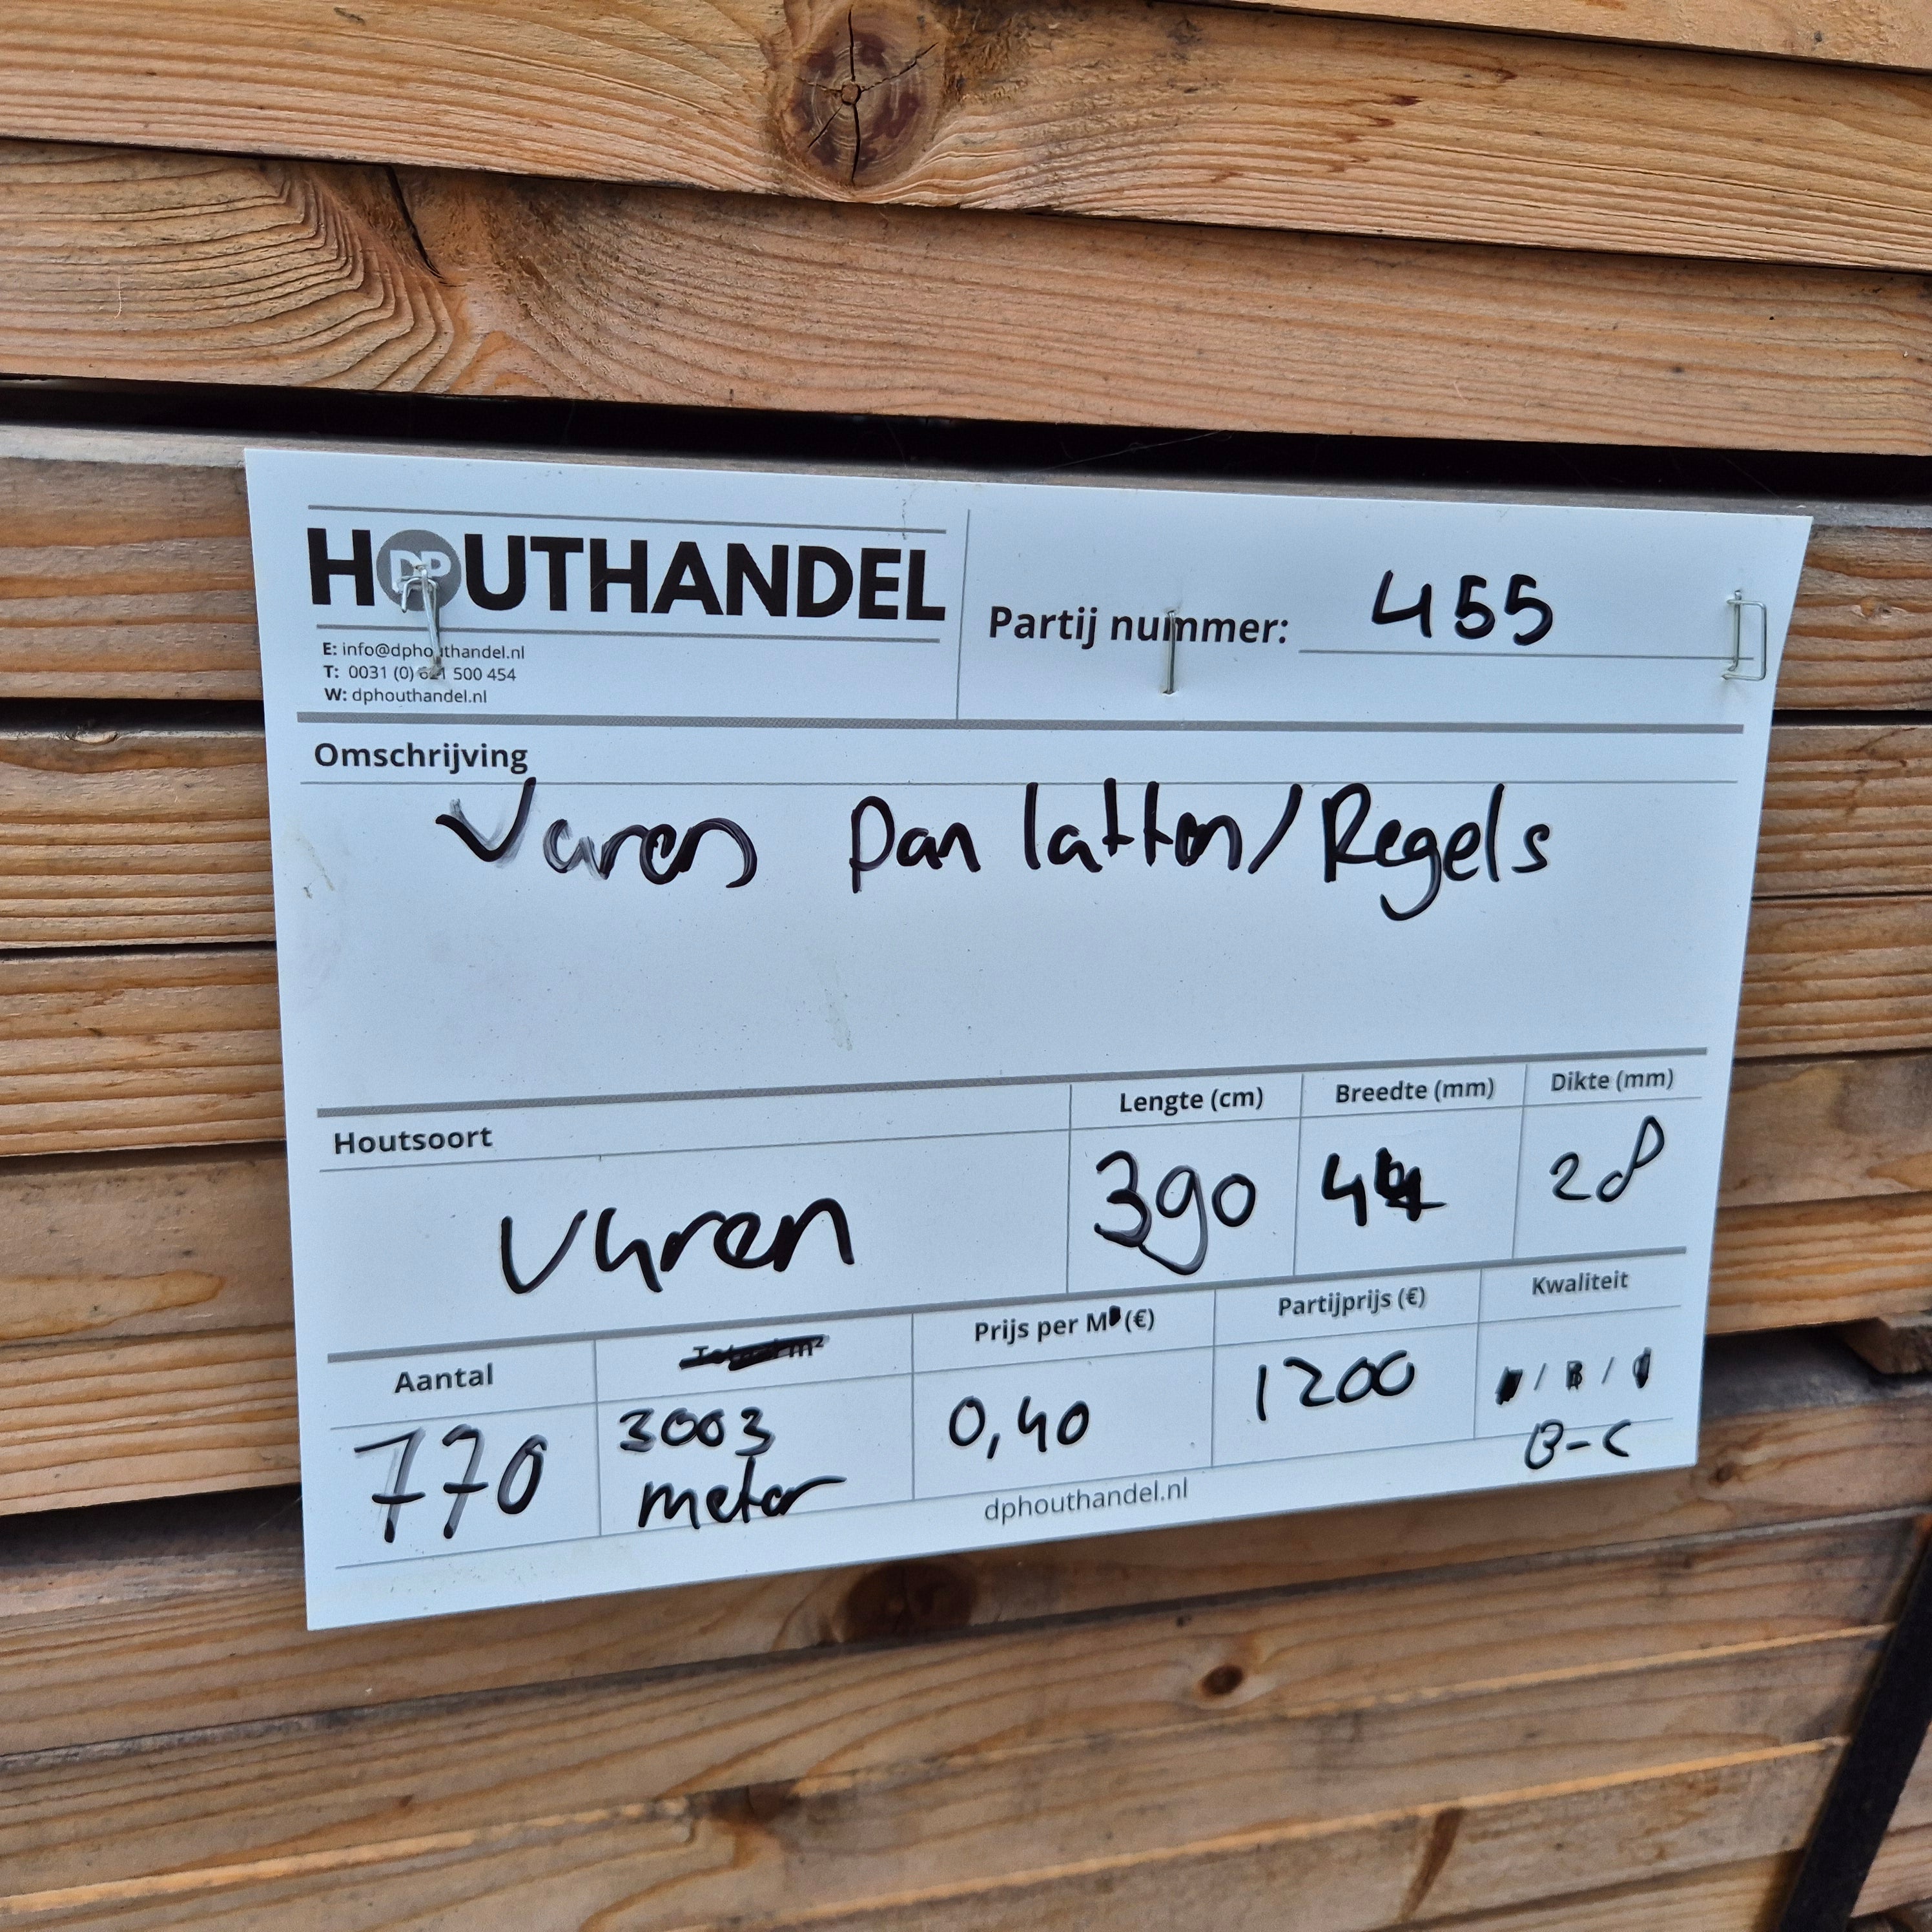 HOUTHANDEL
DP
Partij nummer: 455
E: info@dphouthandel.nl
T: 0031 (0) 621 500 454
W: dphouthandel.nl
Omschrijving
Vuren pan latten/Regels
Houtsoort
Lengte (cm)
Breedte (mm)
Dikte (mm)
Vuren
390
44
28
Aantal
m²
Prijs per M (€)
Partijprijs (€)
Kwaliteit
770
3003
meter
0,40
1200
/ B /
B-C
dphouthandel.nl